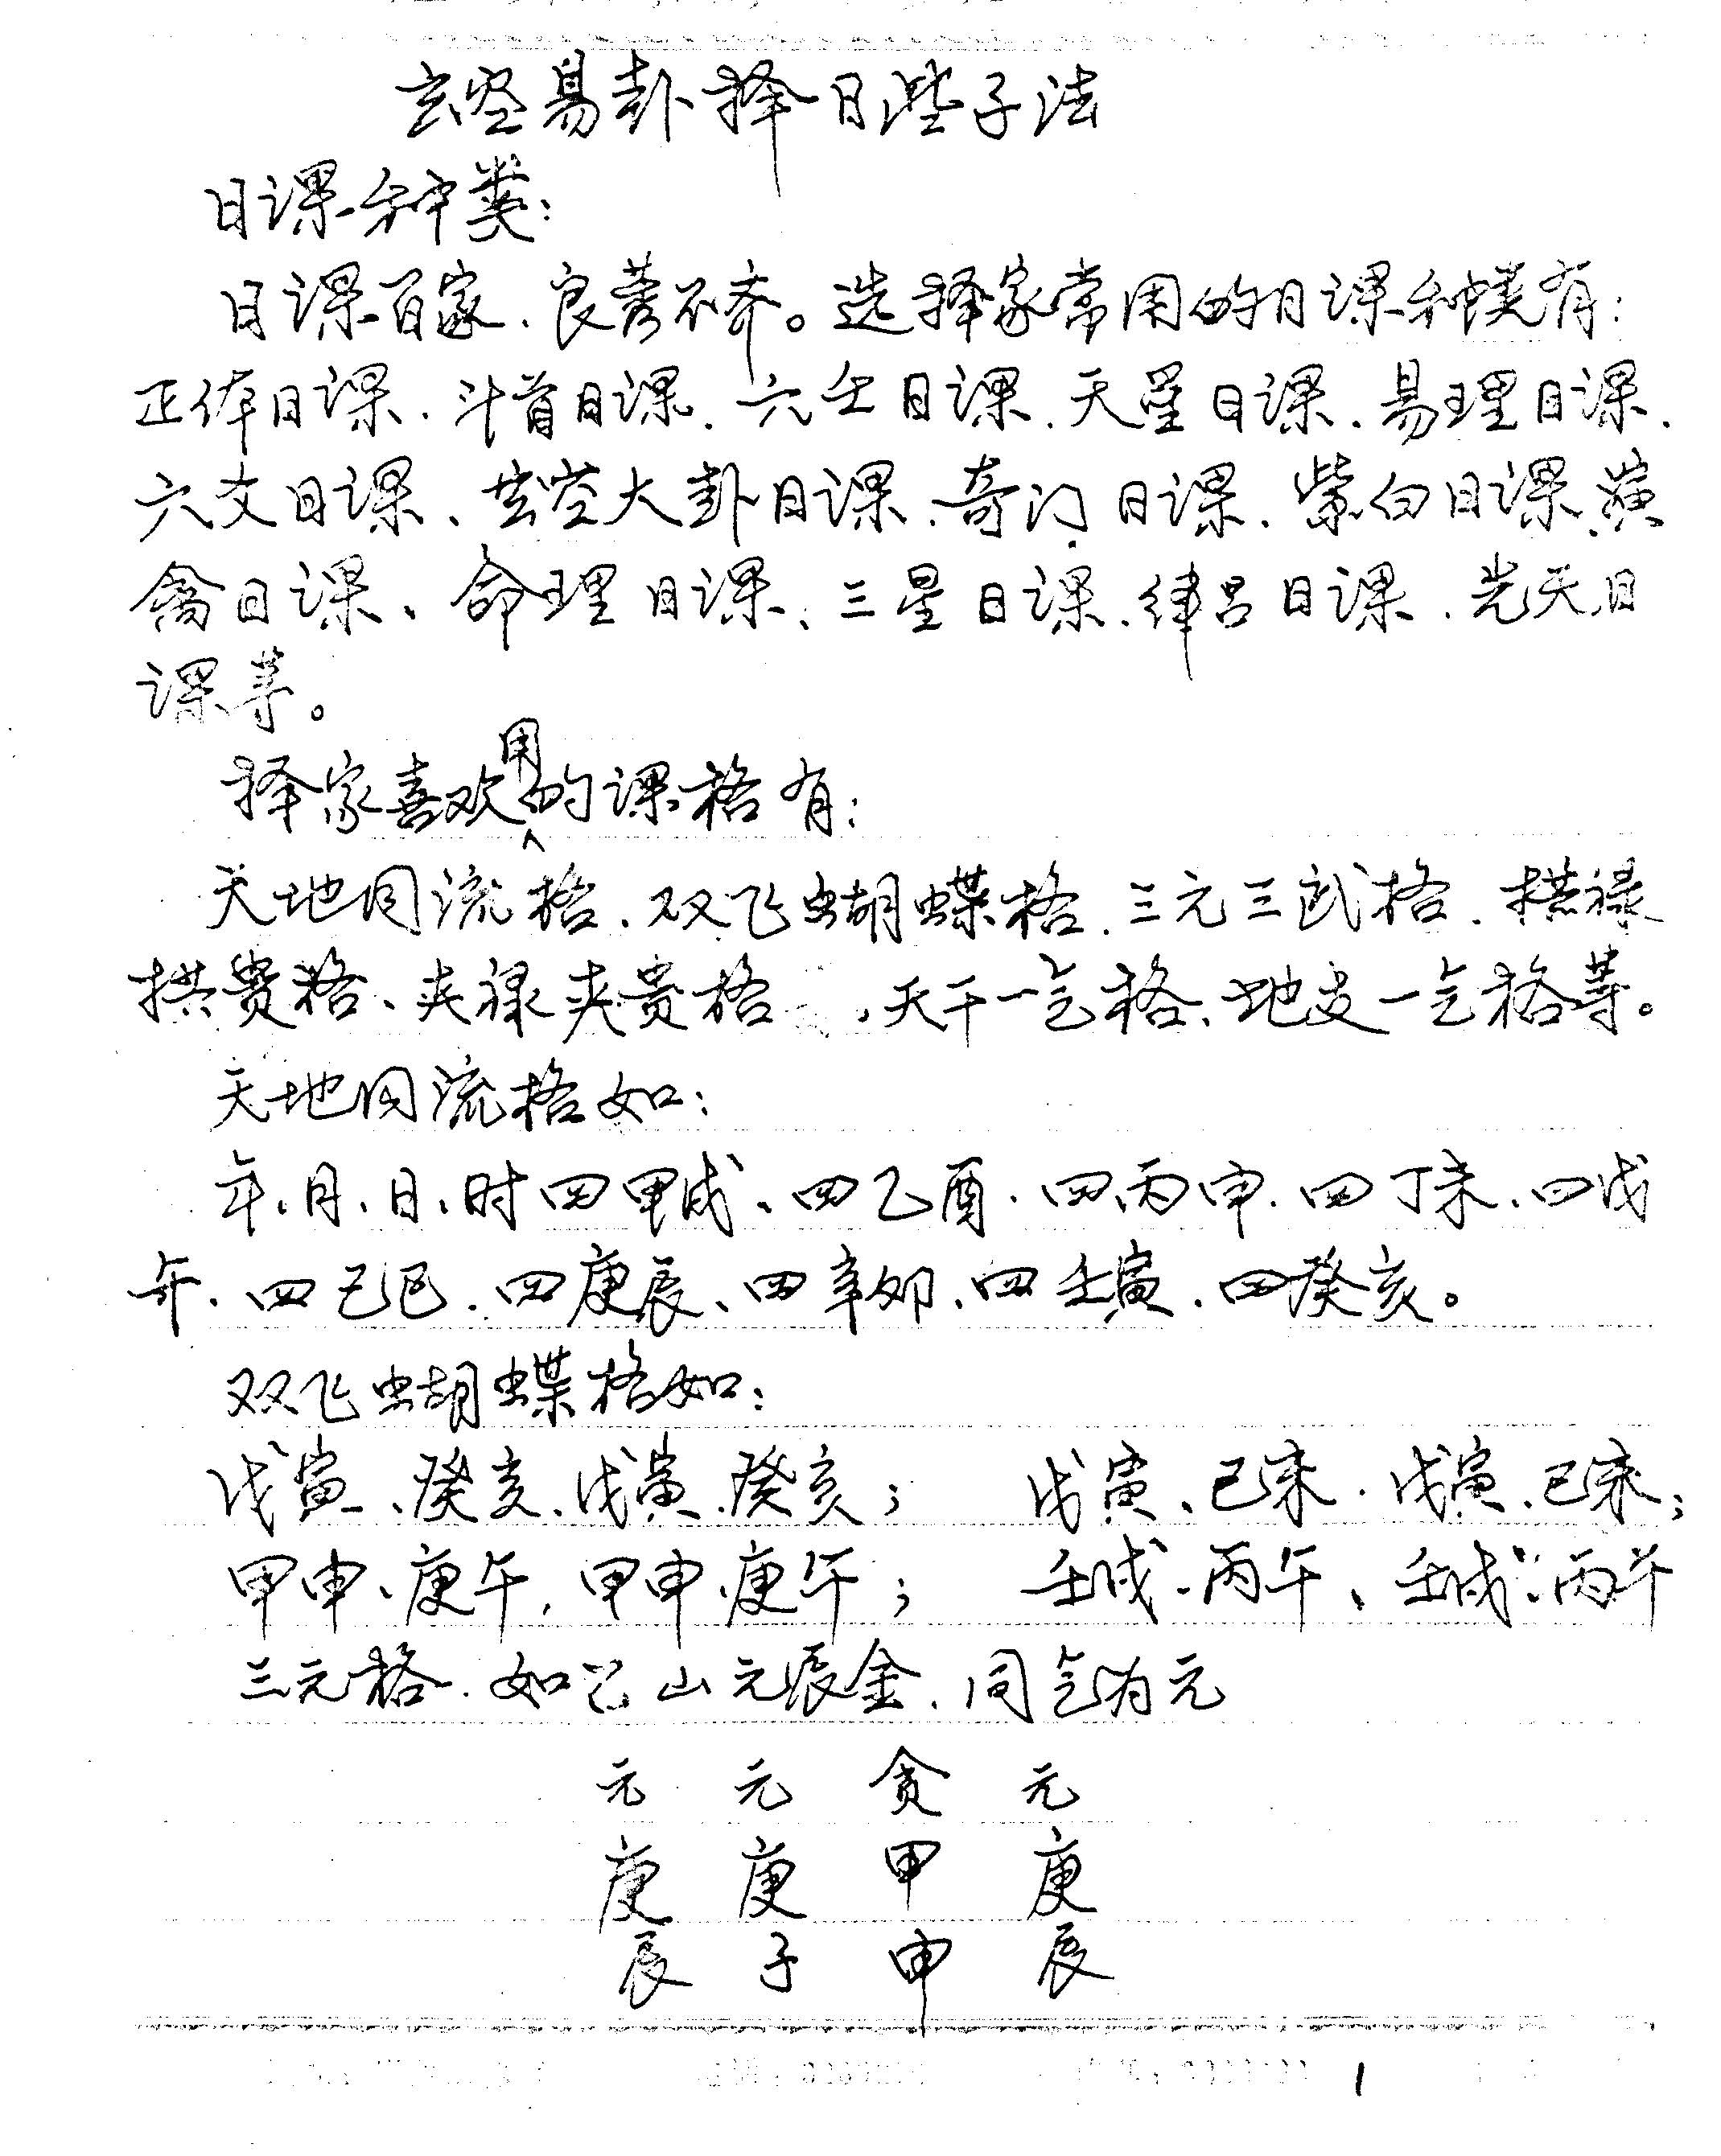 玄空易卦择日些子法
日课种类：
日课百家、良莠不齐。选择家常用的日课种类有：
正体日课、斗首日课、六壬日课、天星日课、易理日课、
六爻日课、玄空大卦日课、奇门日课、紫白日课、演
禽日课、命理日课、三星日课、律吕日课、先天日
课等。
择家喜欢用的课格有：
天地同流格、双飞蝴蝶格、三元三武格、拱禄
拱贵格、夹禄夹贵格、天干一气格、地支一气格等。
天地同流格如：
年、月、日、时四甲戌、四乙酉、四丙申、四丁未、四戊
午、四己巳、四庚辰、四辛卯、四壬寅、四癸亥。
双飞蝴蝶格如：
戊寅、癸亥、戊寅、癸亥； 戊寅、己未、戊寅、己未；
甲申、庚午、甲申、庚午； 壬戌、丙午、壬戌、丙午
三元格、如 山元辰金、同气为元
元 元 贪 元
庚 庚 甲 庚
辰 子 申 辰
1